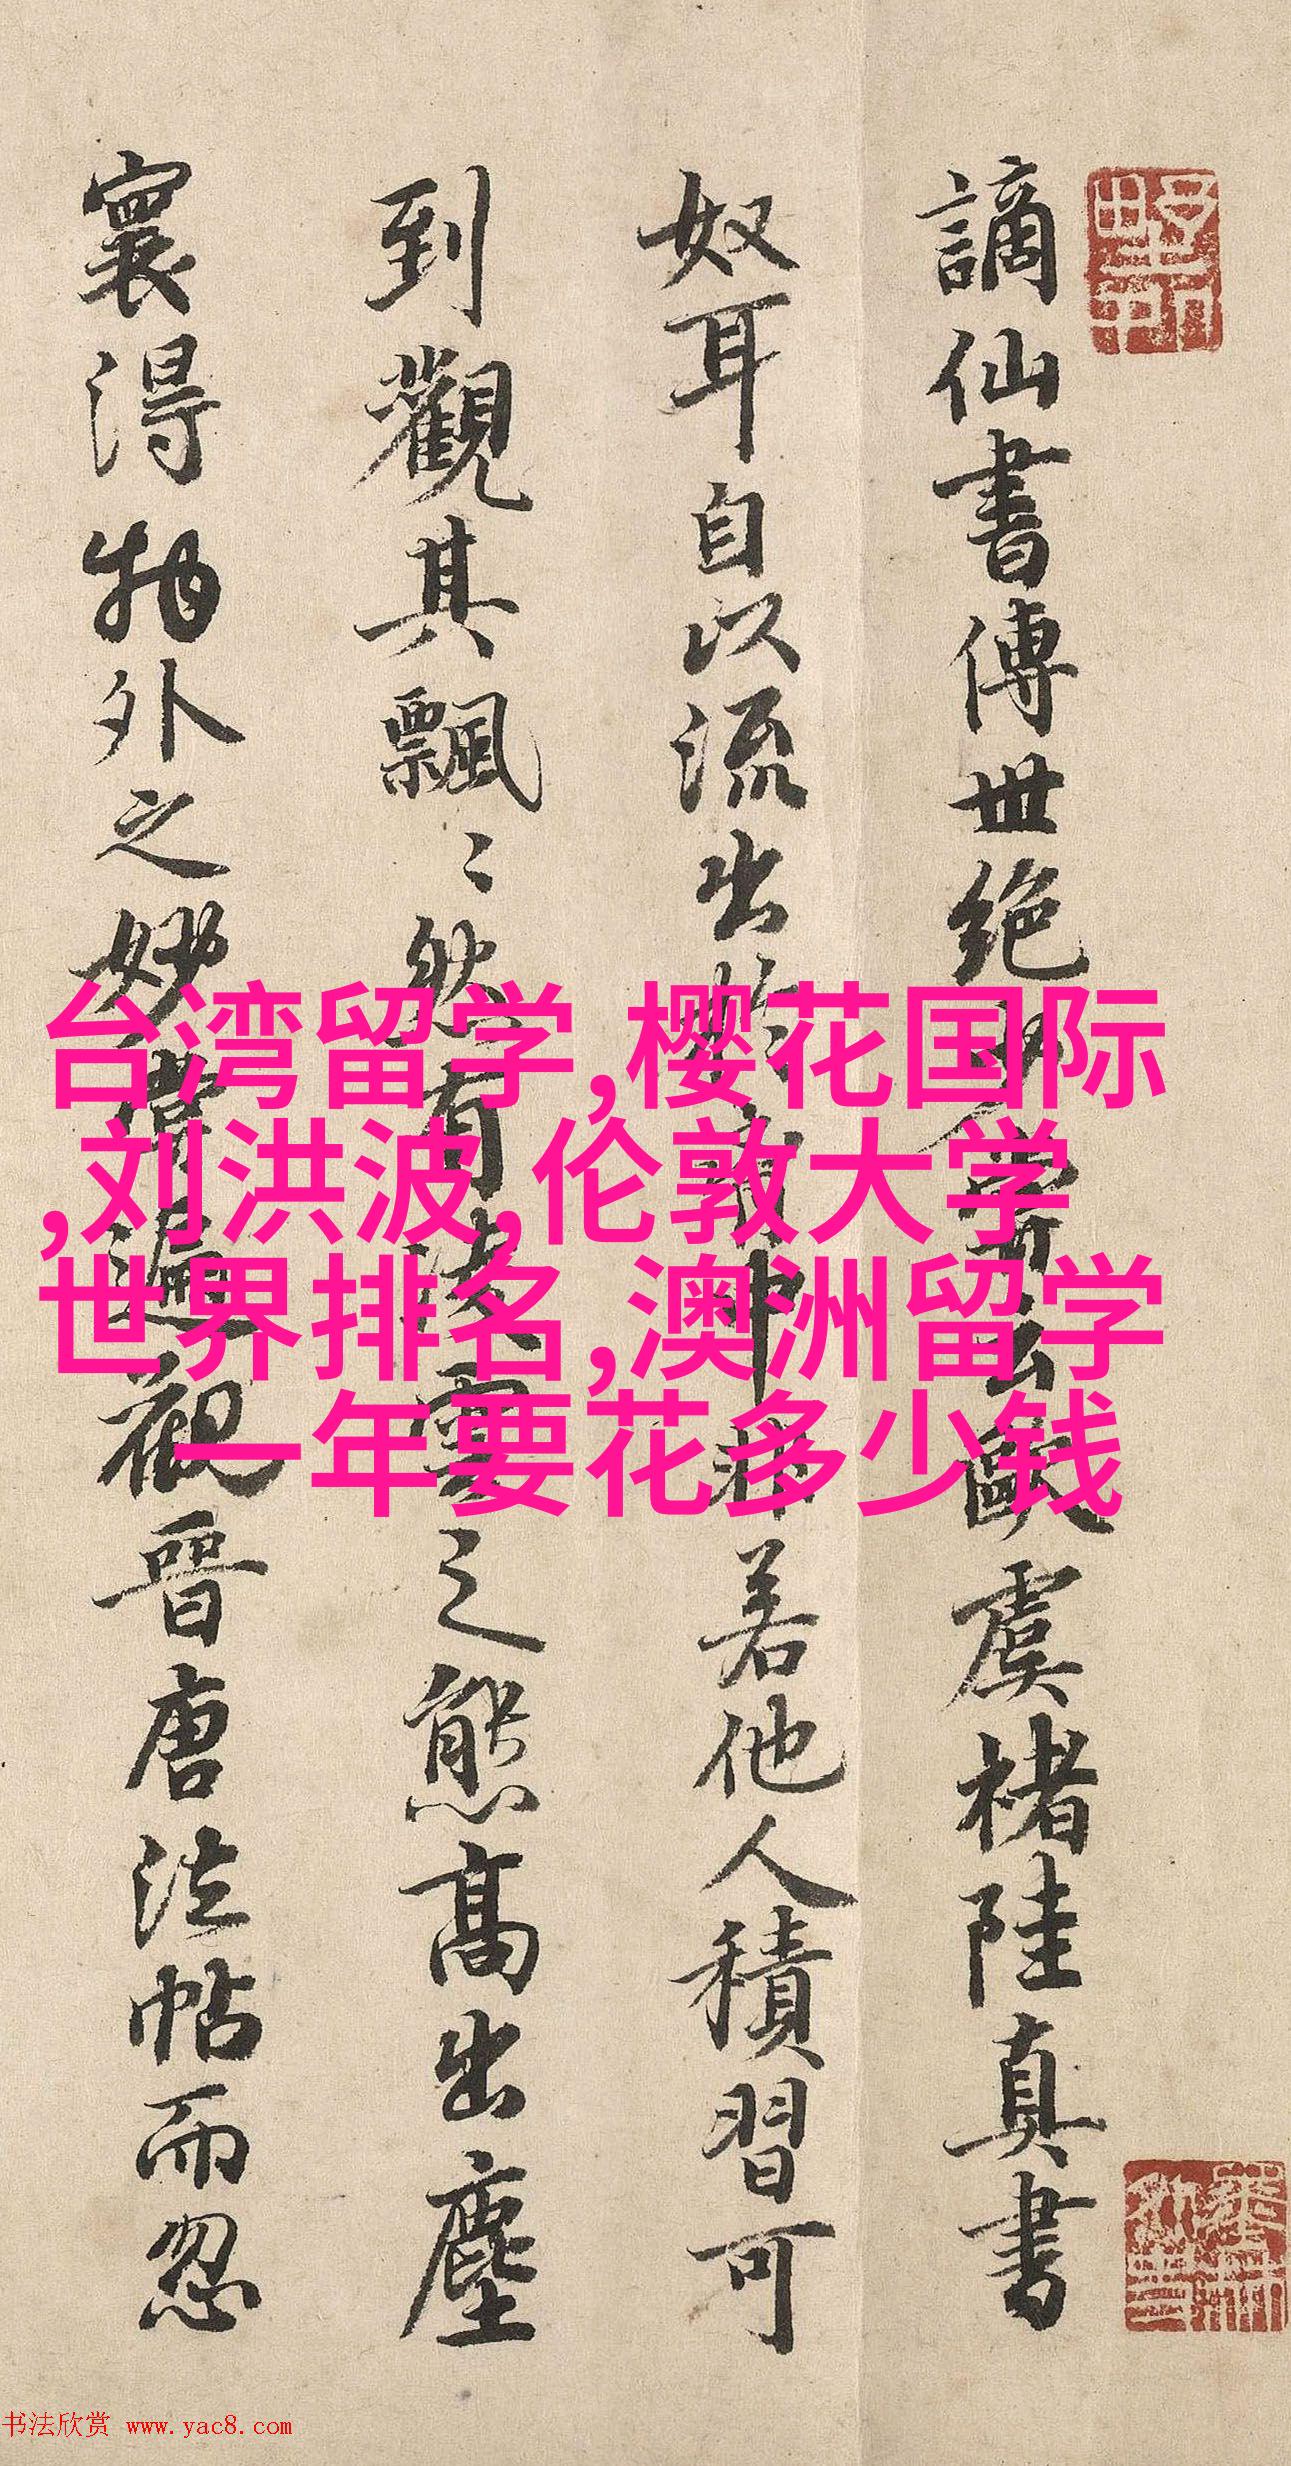 謫仙書傳世絕
虞褚陸真書
奴耳自以流出於
中非若他人積習可
到觀其飄〻然有凌雲之態高出塵
寰得物外之妙嘗遍觀晉唐法帖而忽
台湾留学,樱花国际
,刘洪波,伦敦大学
世界排名,澳洲留学
一年要花多少钱
书法欣赏 www.yac8.com